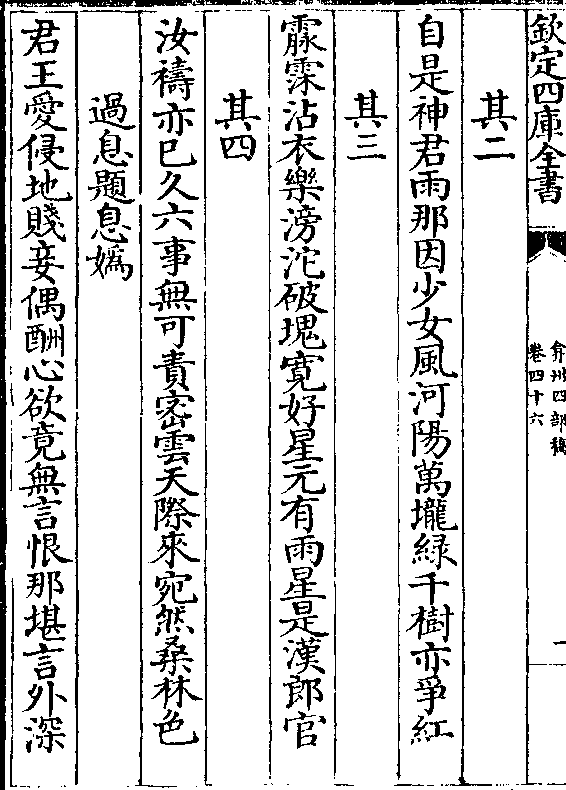 欽定四庫全書
弇州四部稿
卷四十六
一
其二
自是神君雨那因少女風河陽萬壠緑千樹亦爭紅
其三
霡霂沾衣樂滂沱破塊寛好星元有雨星是漢郎官
其四
汝禱亦已久六事無可責密雲天際來宛然桑林色
過息題息嬀
君王愛侵地賤妾偶酬心欲竟無言恨那堪言外深